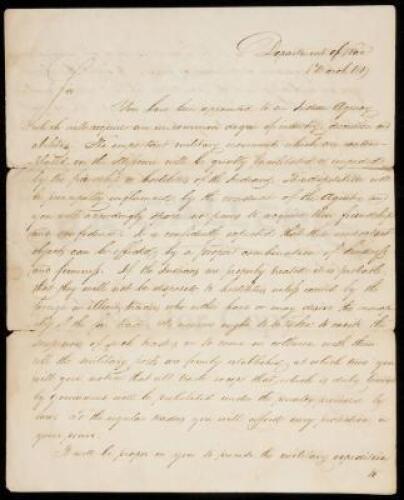 Department of War
March 1819
Sir
You have been appointed to an Indian Agency
which will require an uncommon degree of industry, discretion and
abilities. The important military movements which are contem-
plated on the will be greatly facilitated or impeded
by the friendship or hostilities of the Indians. Their disposition will
be greatly influenced by the conduct of the Agents, and
you will accordingly spare no pains to acquire their friendship
and confidence. It is confidently believed that this important
object can be effected, by a proper combination of kindness
and firmness. If the Indians are properly treated it is probable
that they will not be disposed to hostilities unless excited by the
foreign traders who either have or may desire the monop-
oly of the fur trade. No measure ought to be taken to excite the
suspicion of such traders or to come in collision with them
till the military posts are firmly established, at which time you
will give notice that all trade except that which is duly licensed
by Government will be prohibited under the penalty provided by
law. To the regular traders you will afford every protection in
your power.
It will be proper in you to precede the military expedition